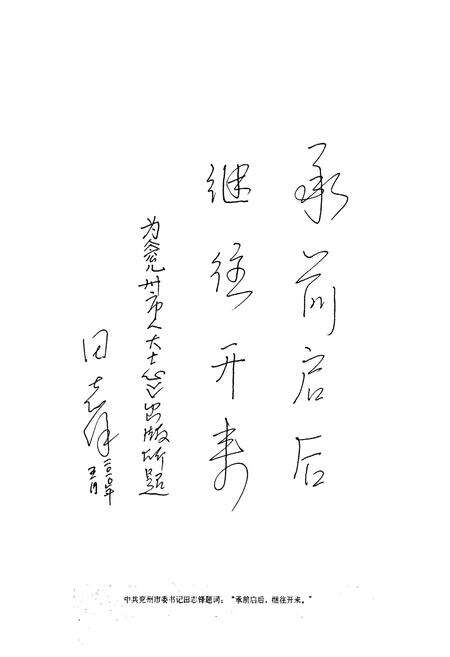 承前启后
继往开来
为兖州市人大志出版所题
田志锋
二〇一〇年
五月
中共兖州市委书记田志锋题词：“承前启后，继往开来。”